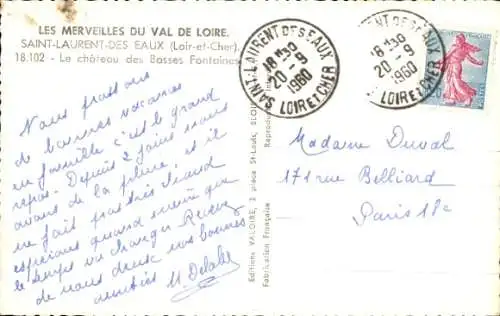 LES MERVEILLES DU VAL DE LOIRE.
SAINT-LAURENT-DES EAUX (Loir-et-Cher).
18.102 - Le château des Basses Fontaines
Nous passons
de bonnes vacances
en famille c'est le grand
repos. Depuis 2 jours nous
avons de la pluie, et il
ne fait pas très chaud
espérons quand même que
le temps va changer Recevez
de nous deux nos bonnes
amitiés
M. Delabe
Editions VALOIRE, 2 place St-Louis, BLOIS
Fabrication Française
SAINT-LAURENT DES EAUX
18 H30
20 - 9
1960
LOIR ET CHER
SAINT-LAURENT DES EAUX
18 H30
20 - 9
1960
LOIR ET CHER
Madame Duval
171 rue Belliard
Paris 18e